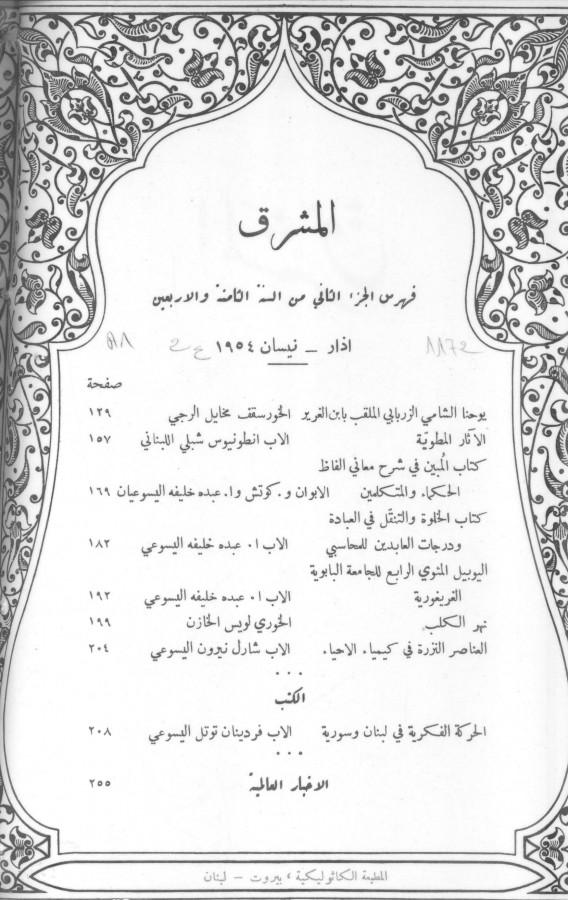 المشرق
فهرس الجزء الثاني من السنة الثامنة والاربعين
اذار – نيسان ١٩٥٤
صفحة
يوحنا الشامي الزربابي الملقب بابن الغرير الخورسقف مخايل الرجي ١٢٩
الآثار المطويّة الاب انطونيوس شبلي اللبناني ١٥٧
كتاب المُبين في شرح معاني الفاظ
الحكماء والمتكلمين الابوان و. كوتش وا. عبده خليفه اليسوعيان ١٦٩
كتاب الخلوة والتنقّل في العبادة
ودرجات العابدين للمحاسبي الاب ا. عبده خليفه اليسوعي ١٨٢
اليوبيل المئوي الرابع للجامعة البابوية
الغريغورية الاب ا. عبده خليفه اليسوعي ١٩٢
نهر الكلب الخوري لويس الخازن ١٩٩
العناصر النزرة في كيمياء الاحياء الاب شارل نيرون اليسوعي ٢٠٤
الكتب
الحركة الفكرية في لبنان وسورية الاب فردينان توتل اليسوعي ٢٠٨
الاخبار العالمية ٢٥٥
المطبعة الكاثوليكية ، بيروت – لبنان